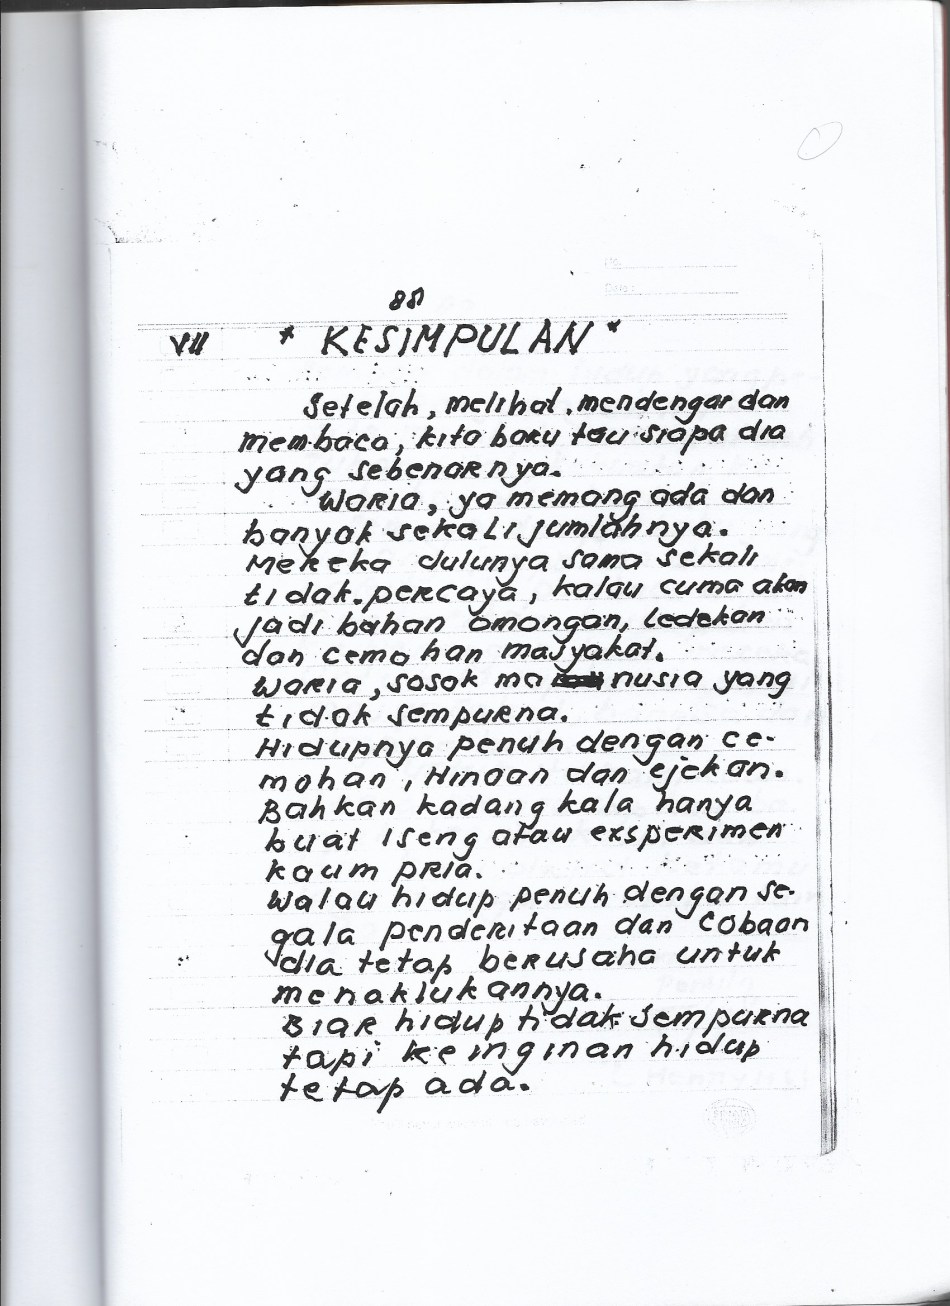 88
VII * KESIMPULAN *
Setelah, melihat, mendengar dan
membaca, kita baru tau siapa dia
yang sebenarnya.
Waria, ya memang ada dan
banyak sekali jumlahnya.
Mereka dulunya sama sekali
tidak percaya, kalau cuma akan
jadi bahan omongan, ledekan
dan cemohan masyakat.
Waria, sosok ma nusia yang
tidak sempurna.
Hidupnya penuh dengan ce-
mohan, Hinaan dan ejekan.
Bahkan kadang kala hanya
buat Iseng atau eksperimen
kaum pria.
Walau hidup penuh dengan se-
gala penderitaan dan Cobaan
dia tetap berusaha untuk
menaklukannya.
Biar hidup tidak sempurna
tapi keinginan hidup
tetap ada.